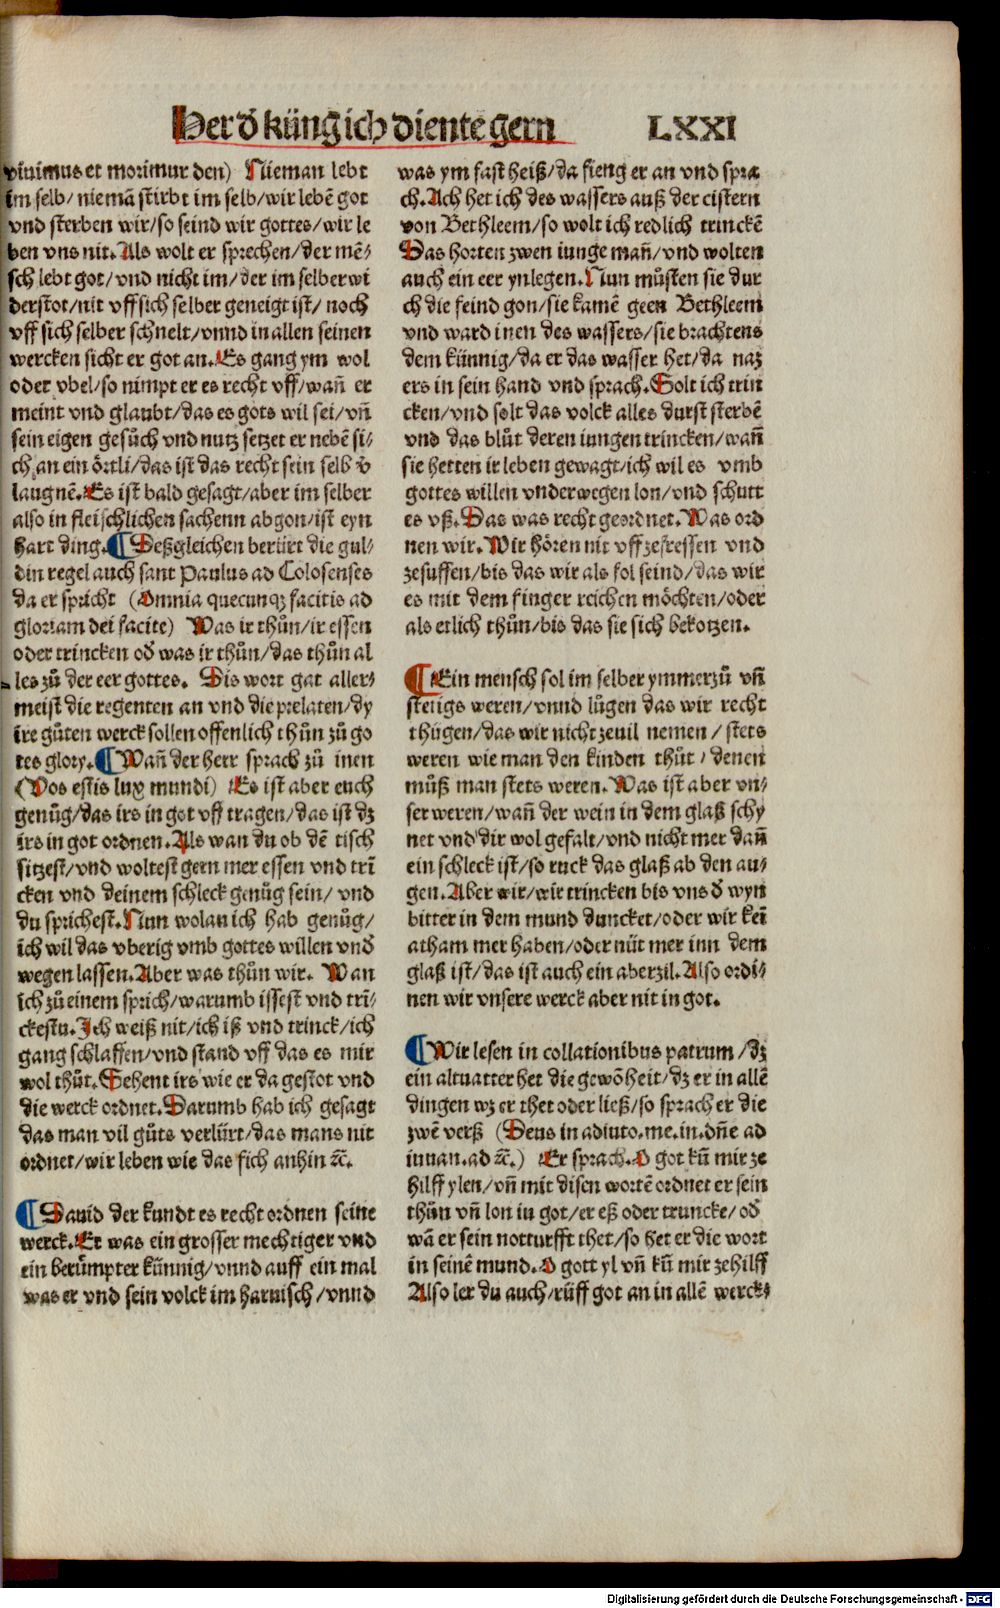 Her d̄ küng ich dientē gern LXXI
viuimus et morimur den) Nieman lebt
im selb/ niemā stirbt im selb/wir lebē got
vnd sterben wir/so seind wir gottes/wir le
ben vns nit. Als wolt er sprechen/der mē⸗
sch lebt got/vnd nicht im/der im selber wi
derstot/nit vff sich selber geneigt ist/ noch
vff sich selber schnelt/vnnd in allen seinen
wercken sicht er got an. Es gang ym wol
oder vbel/so nimpt er es recht vff/wañ er
meint vnd glaubt/das es gots wil sei/vñ
sein eigen gesůch vnd nutz setzet er nebē si⸗
ch an ein örtli/das ist das recht sein selb v̄
laugnē. Es ist bald gesagt/aber im selber
also in fleischlichen sachenn abgon/ist eyn
hart ding. ¶ Deßgleichen berürt die gul⸗
din regel auch sant Paulus ad Colosenses
da er spricht (Omnia quecunqꝫ facitis ad
gloriam dei facite) Was ir thůn/ir essen
oder trincken od̄ was ir thůn/das thůn al
les zů der eer gottes. Dis wort gat aller⸗
meist die regenten an vnd die prelaten/dy
ire gůten werck sollen offenlich thůn zů go
tes glory. ¶ Wañ der herr sprach zů inen
(Vos estis lux mundi) Es ist aber euch
genůg/das irs in got vff tragen/das ist dz
irs in got ordnen. Als wan du ob dē tisch
sitzest/vnd woltest gern mer essen vnd trī
cken vnd deinem schleck genůg sein/ vnd
du sprichest. Nun wolan ich hab genůg/
ich wil das vberig vmb gottes willen vnd̄
wegen lassen. Aber was thůn wir. Wan
ich zů einem sprich/warumb issest vnd trī⸗
ckestu. Ich weiß nit/ich iß vnd trinck/ich
gang schlaffen/vnd stand vff das es mir
wol thůt. Sehent irs wie er da gestot vnd
die werck ordnet. Darumb hab ich gesagt
das man vil gůts verlürt/das mans nit
ordnet/wir leben wie das fich anhin ꝛc̄.
¶ Dauid der kundt es recht ordnen seine
werck. Er was ein grosser mechtiger vnd
ein berümpter künnig/vnnd auff ein mal
was er vnd sein volck im harnisch/vnnd
was ym fast heiß/da fieng er an vnd spra
ch. Ach het ich des wassers auß der cistern
von Bethleem/so wolt ich redlich trinckē
Das horten zwen iunge mañ/vnd wolten
auch ein eer ynlegen. Nun můsten sie dur
ch die feind gon/sie kamē geen Bethleem
vnd ward inen des wassers/sie brachtens
dem künnig/da er das wasser het/da naz
ers in sein hand vnd sprach. Solt ich trin
cken/vnd solt das volck alles durst sterbē
vnd das blůt deren iungen trincken/wañ
sie hetten ir leben gewagt/ich wil es vmb
gottes willen vnderwegen lon/vnd schutt
es vß. Das was recht geordnet. Was ord
nen wir. Wir hören nit vff zefressen vnd
zesuffen/bis das wir als fol seind/das wir
es mit dem finger reichen möchten/oder
als etlich thůn/bis das sie sich bekotzen.
¶ Ein mensch sol im selber ymmerzů vñ
stetigs weren/vnnd lůgen das wir recht
thügen/das wir nicht zeuil nemen/ stets
weren wie man den kinden thůt/ denen
můß man stets weren. Was ist aber vn⸗
ser weren/wañ der wein in dem glaß schy
net vnd dir wol gefalt/vnd nicht mer dañ
ein schleck ist/so ruck das glaß ab den au⸗
gen. Aber wir/wir trincken bis vns d̄ wyn
bitter in dem mund duncket/oder wir kei
atham mer haben/oder nüt mer inn dem
glaß ist/das ist auch ein aberzil. Also ordi⸗
nen wir vnsere werck aber nit in got.
¶ Wir lesen in collationibus patrum/dz
ein altuatter het die gewōheit/dz er in allē
dingen wz er thet oder ließ/so sprach er die
zwē verß (Deus in adiuto.me.in.dñe ad
iuuan.ad ꝛc̄.) Er sprach. O got kū mir ze
hilff ylen/vñ mit disen wortē ordnet er sein
thůn vñ lon iu got/er eß oder truncke/od̄
wā er sein notturfft thet/so het er die wort
in seinē mund. O gott yl vñ kū mir zehilff
Also ler du auch/rüff got an in allē werck⸗
Digitalisierung gefördert durch die Deutsche Forschungsgemeinschaft - DFG